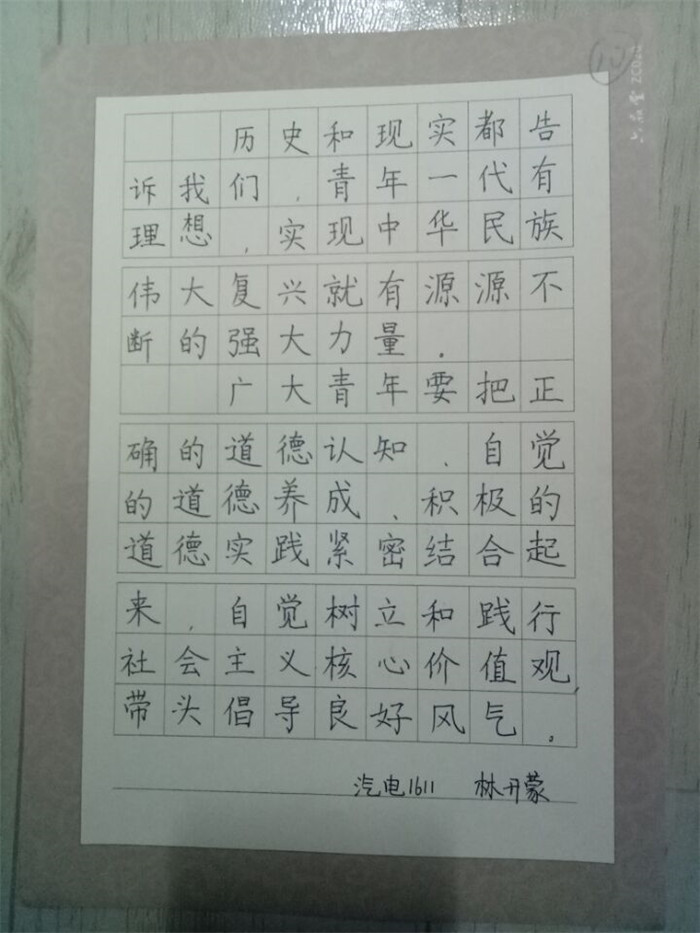 10
历史和现实都告
诉我们，青年一代有
理想，实现中华民族
伟大复兴就有源源不
断的强大力量。
广大青年要把正
确的道德认知、自觉
的道德养成、积极的
道德实践紧密结合起
来，自觉树立和践行
社会主义核心价值观，
带头倡导良好风气。
汽电1611 林开蒙